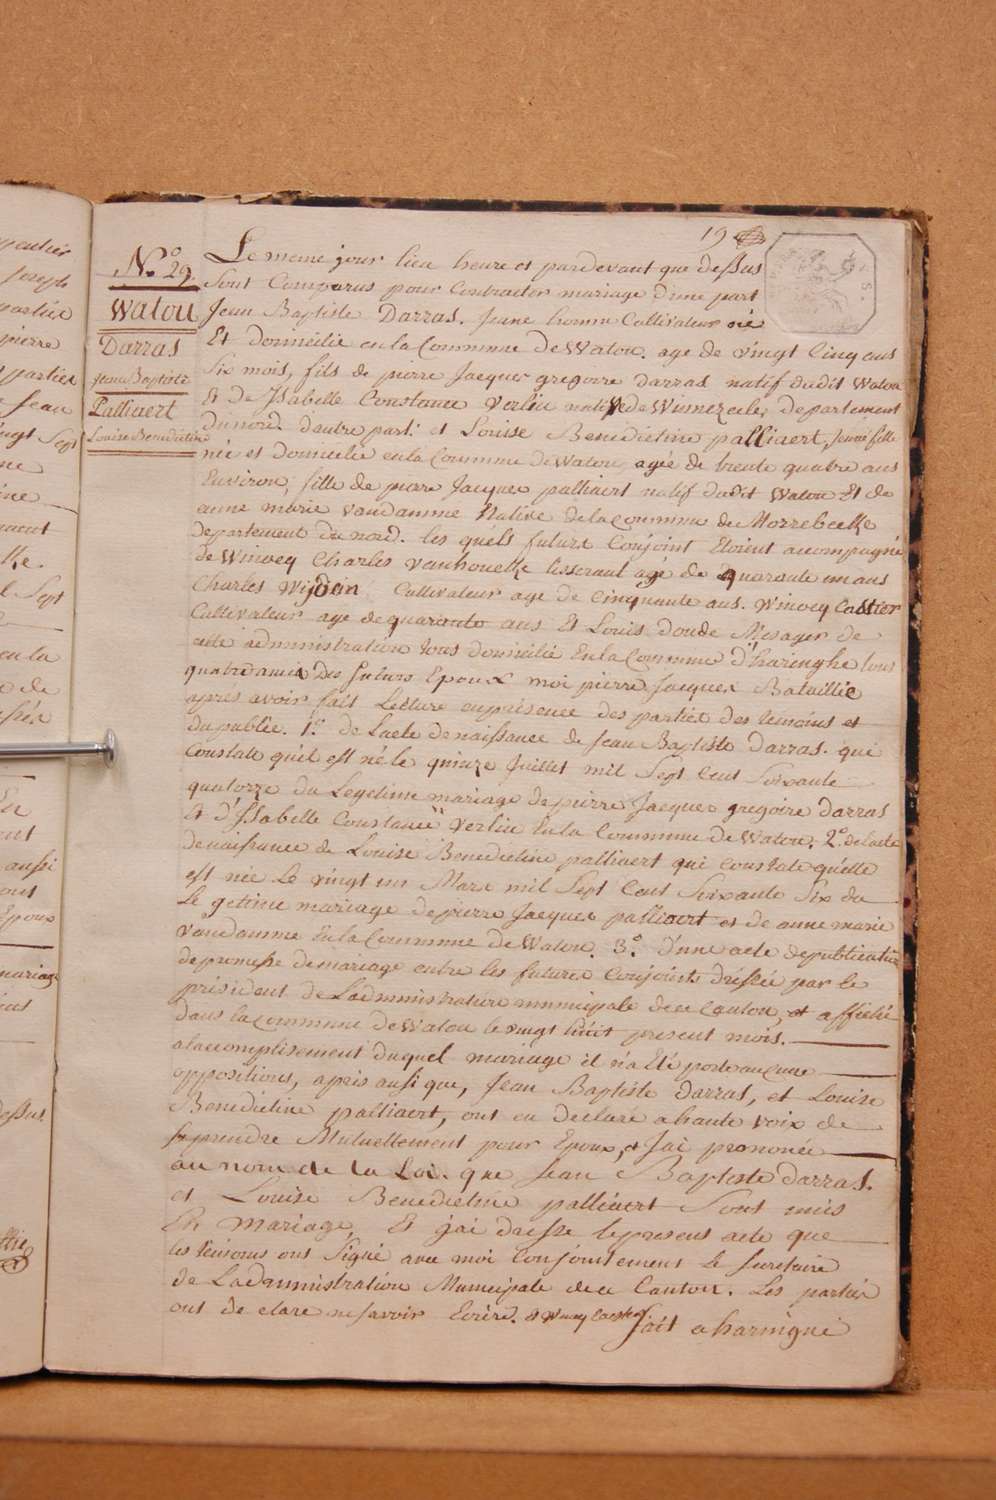 19
N.° 29.
Watou
Darras
Jean Baptiste
Palliaert
Louise Benedictine
Le meme jour lieu heure et pardevant que dessus
sont Comparus pour Contracter mariage d'une part
Jean Baptiste Darras. Jeune homme Cultivateur né
Et domicilié en la Commune de Watou. agé de vingt Cinq ans
six mois, fils de pierre Jacques gregoire darras natif dudit Watou
Et de Isabelle Constance Verlin native de Winnezeele, departement
du nord. dautre part. et Louise Benedictine palliaert, jeune fille
née et domiciliée en la Commune de Watou, agée de trente quatre ans
Environ, fille de pierre Jacques palliaert natif dudit Watou Et de
anne marie vandamme Native de la Commune de Morrebecke
departement du nord. les quels futurs Conjoint Etoient accompagné
de Winocq Charles vanhoucke tisserant agé de quarante un ans
Charles Cultivateur age de Cinquante ans. Winocq Castier
Cultivateur age de quarante ans Et Louis doude Mesager de
cette administration tous domicilié En la Commune d'haringhe tous
quatre amis des futurs Epoux moi pierre Jacques Bataillie
apres avoir fait Lecture en presence des parties des temoins et
du publie. 1.° de Lacte de naissance de Jean Baptiste Darras. qui
Constate qu'il est né le quinze Juillet mil Sept Cent Soixante
quatorze du Legetime mariage de pierre Jacques gregoire darras
Et d'Isabelle Constance Verlin En la Commune de Watou. 2.° de lacte
de naissance de Louise Benedictine palliaert qui constate qu'elle
est née Le vingt un Mars mil Sept Cent Soixante Six du
Le getime mariage de pierre Jacques palliaert et de anne marie
vandamme En la Commune de Watou. 3.° d'une acte de publication
de promesse de mariage entre les futures Conjoints dressée par le
président de Ladministration municipale de ce Canton, et affichée
dans la Commune de Watou le vingt huit present mois.
a laccomplisement duquel mariage il n'a Eté porte aucune
oppositions, apris ausi que, Jean Baptiste Darras, et Louise
Benedictine palliaert, ont eu declaré a haute voix de
se prendre Mutuellement pour Epoux, et Jai prononcé
au nom de la Loi. que Jean Baptiste darras.
et Louise Benedictine palliaert Sont unis
En Mariage, Et jai dresse le present acte que
les temoins ont Signé avec moi Conjointement le Secretaire
de Ladministration Municipale de ce Canton. Les parties
ont de clare ne savoir Ecrire. et Winocq Castier fait a haringue